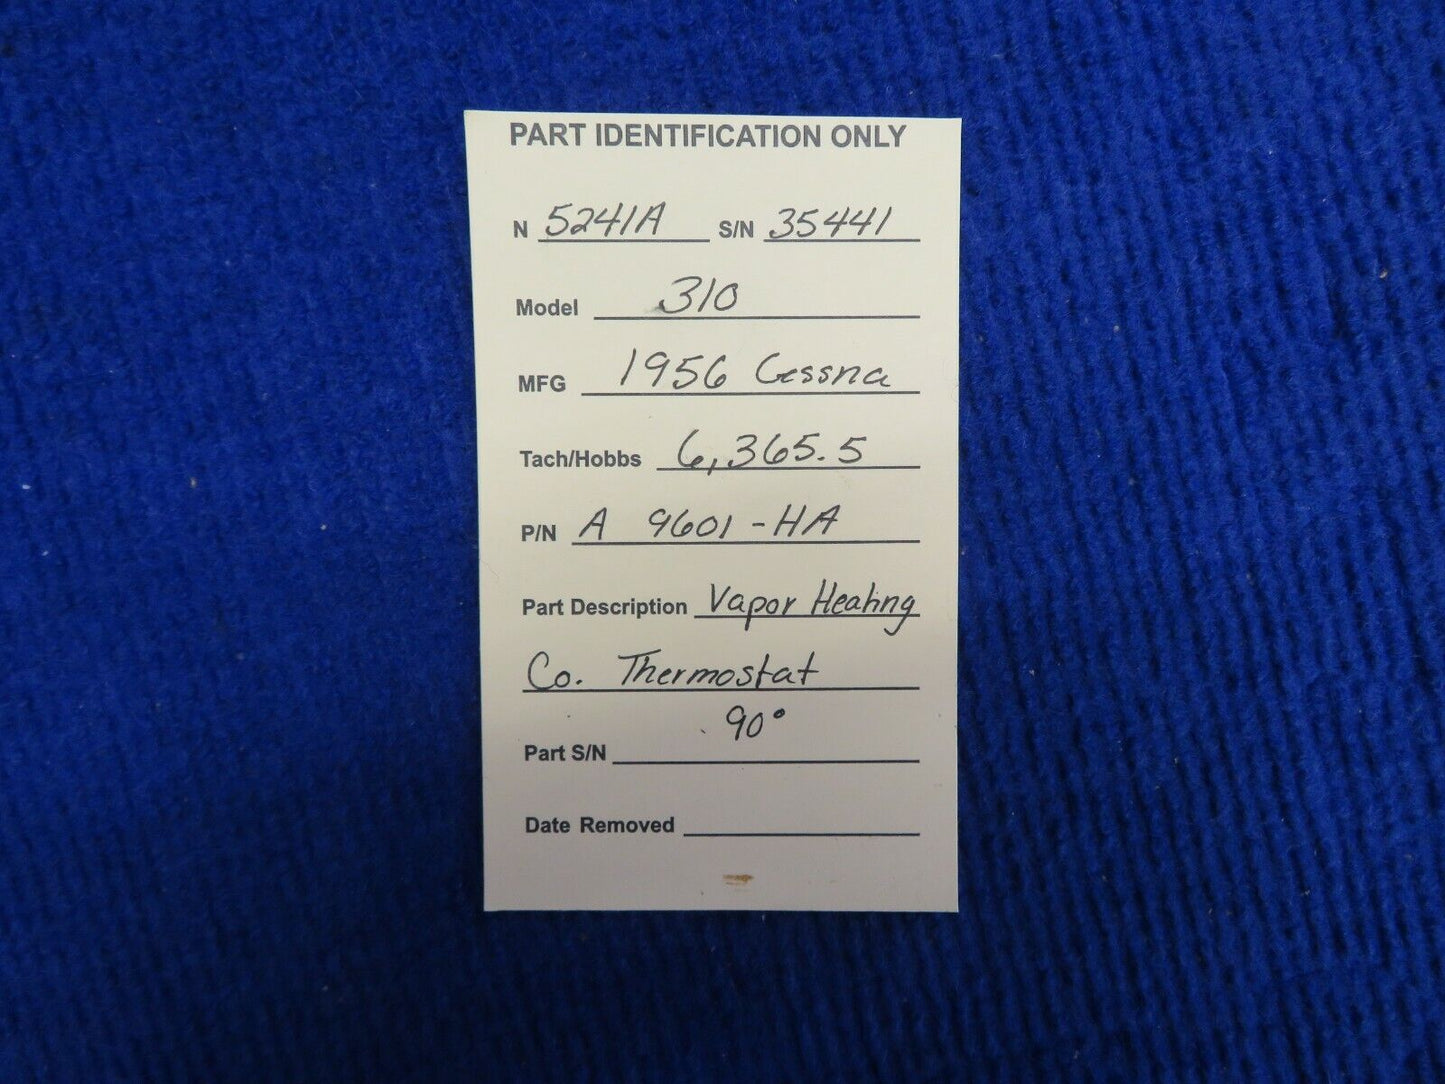 PART IDENTIFICATION ONLY
N 5241A S/N 35441
Model 310
MFG 1956 Cessna
Tach/Hobbs 6,365.5
P/N A 9601-HA
Part Description Vapor Heating
Co. Thermostat
90°
Part S/N
Date Removed